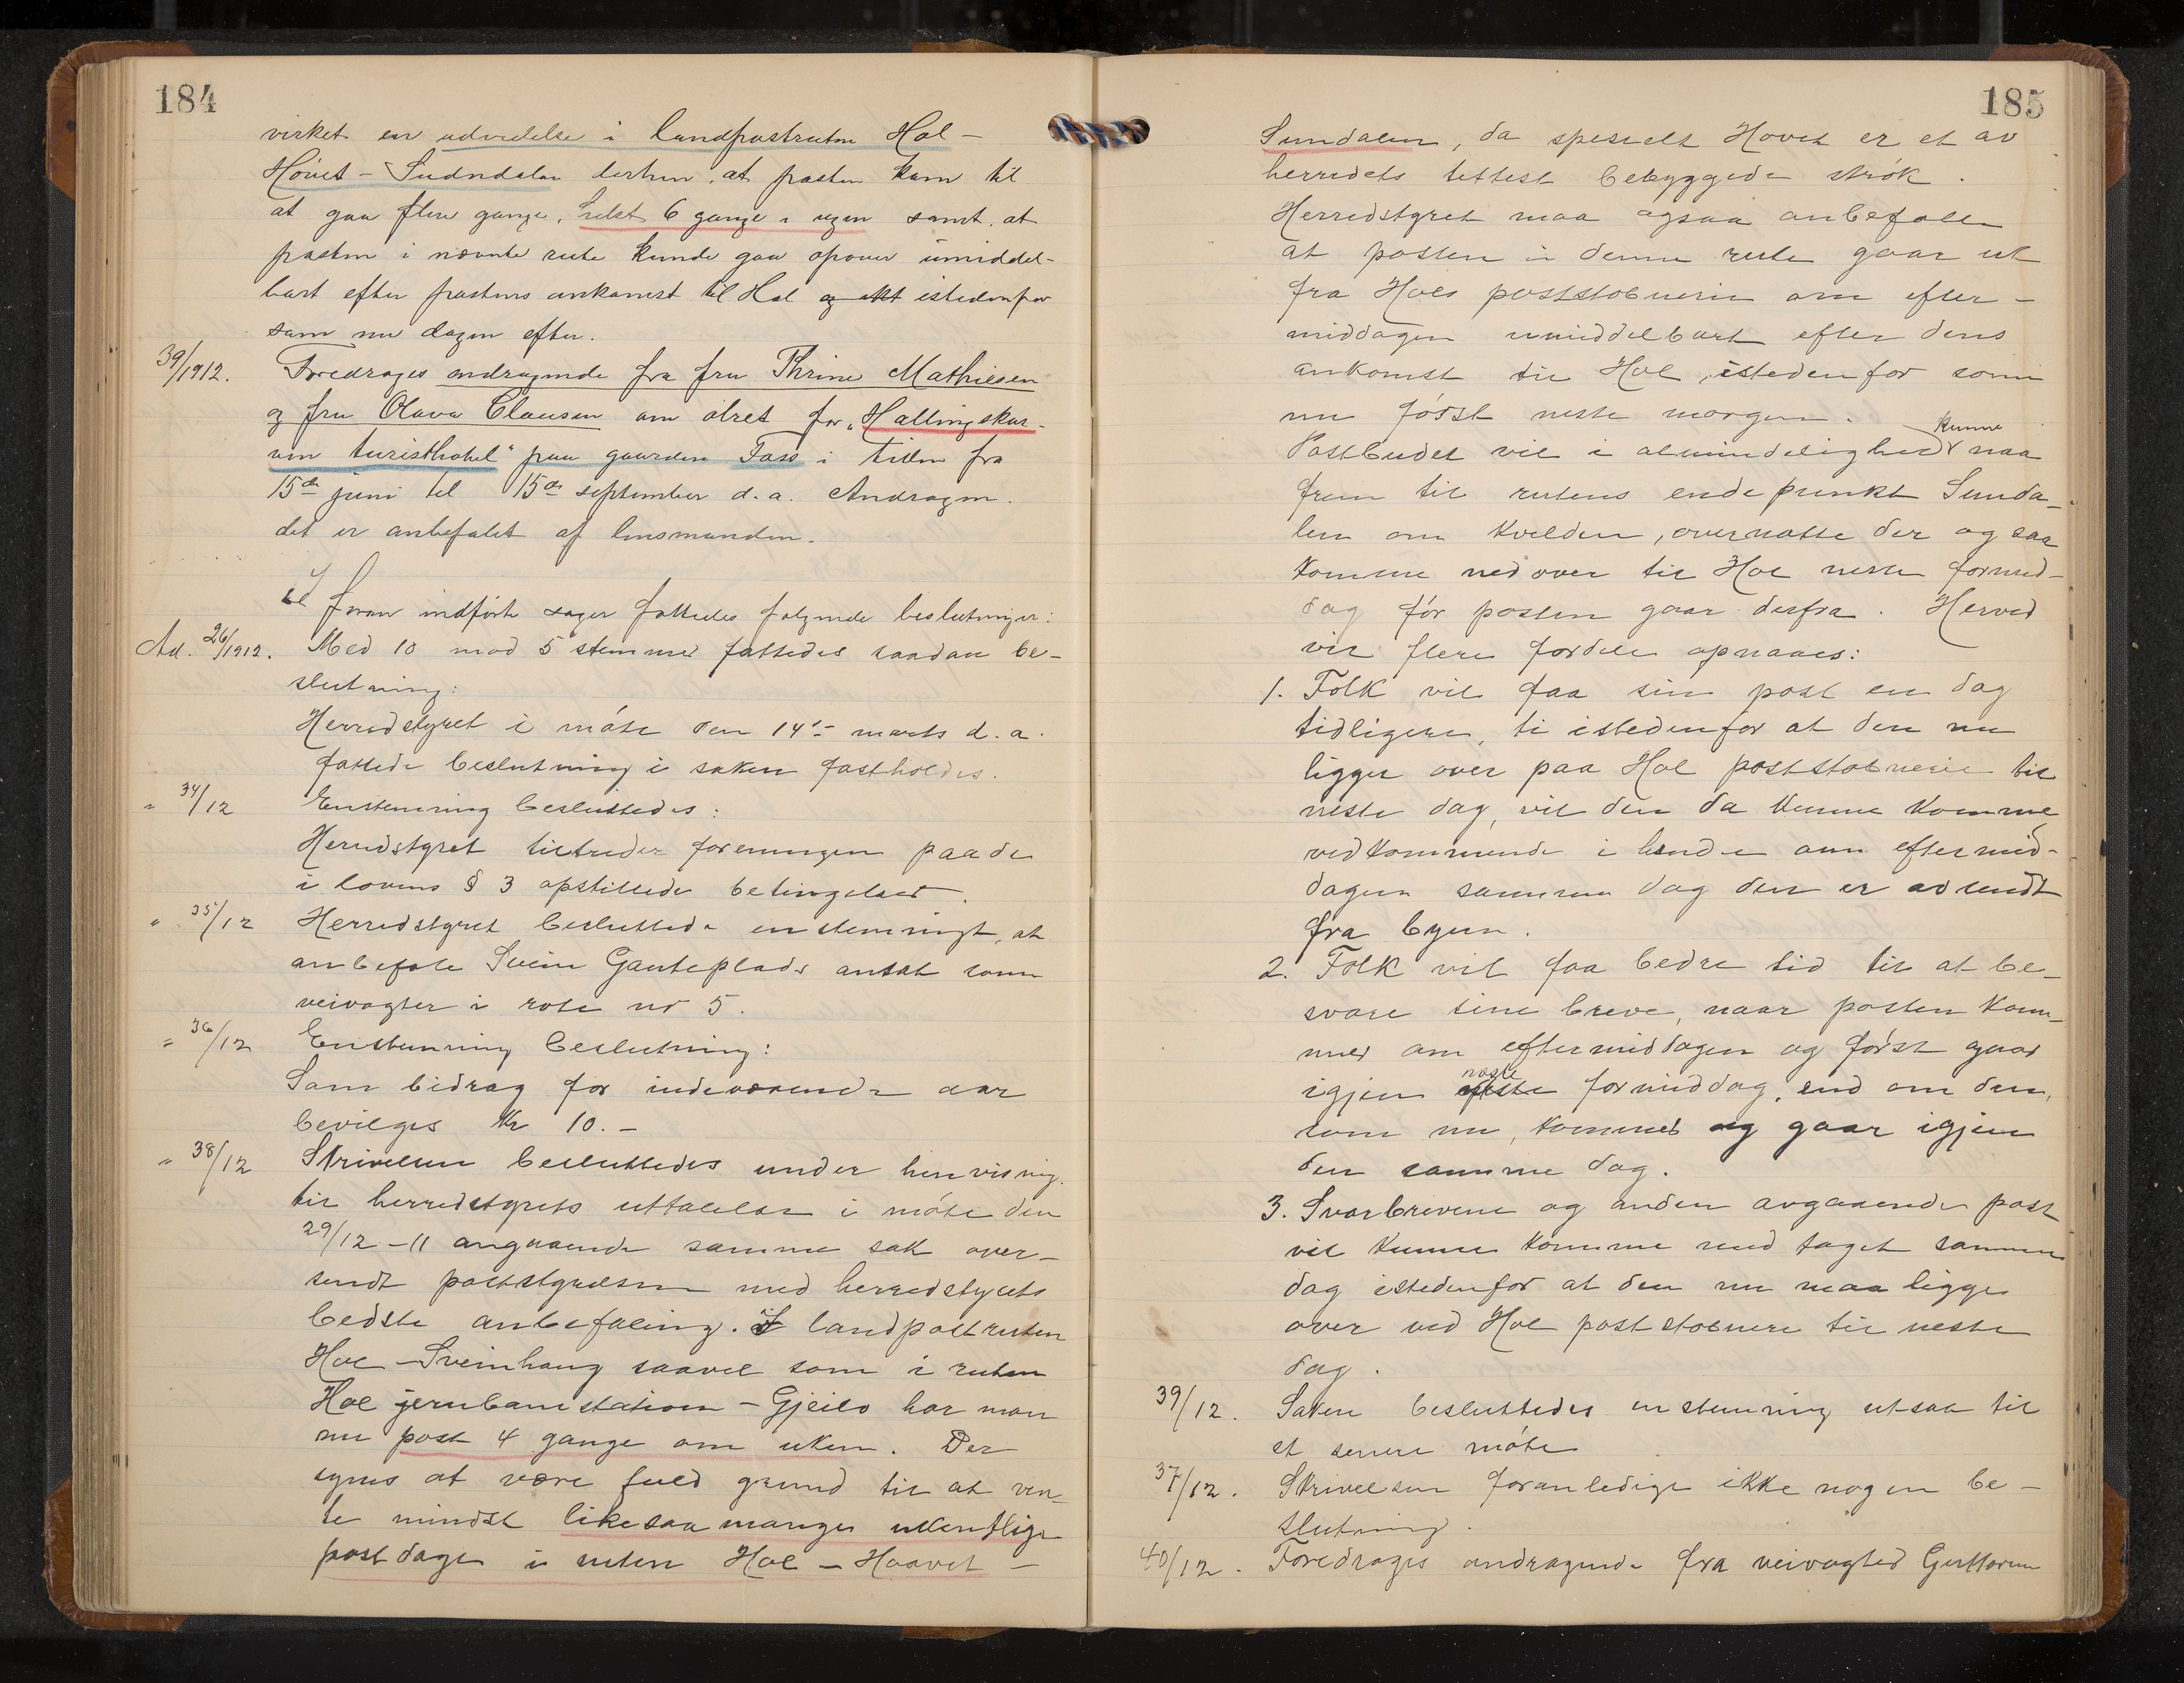 184
virket en udvidelse i landpostruten Hol -
Hovet - Sudndalen derhen, at posten kom til
at gaa flere gange, helst 6 gange i ugen samt, at
posten i nævnte rute kunde gaa opover umiddel-
bart efter postens ankomst til Hol istedenfor
som nu dagen efter.
39/1912. Foredroges andragende fra fru Thrine Mathiesen
og fru Olava Clausen om ølret for „Hallingskar-
ven turisthotel" paa gaarden Foss i tiden fra
15de juni til 15de september d. a. Andragen-
det er anbefalet af lensmanden.
I foran indførte sager fattedes følgende beslutninger:
Ad. 26/1912. Med 10 mod 5 stemmer fattedes saadan be-
slutning:
Herredstyret i møte den 14de marts d. a.
fattede beslutning i saken fastholdes.
" 34/12 Enstemmig besluttedes:
Herredstyret tiltræder foreningen paa de
i lovens § 3 opstillede betingelser.
" 35/12 Herredstyret besluttede enstemmigt, at
anbefale Svein Gauteplads antat som
veivogter i rode nr 5.
" 36/12 Enstemmig beslutning:
Som bidrag for indeværende aar
bevilges Kr 10.-
" 38/12 Skrivelsen besluttedes under henvisning
til herredstyrets uttalelse i møte den
29/12 -11 angaaende samme sak over-
sendt poststyrelsen med herredstyrets
bedste anbefaling. I landpostruten
Hol - Sveinhaug saavel som i ruten
Hol jernbanestation - Gjeilo har man
nu post 4 gange om uken. Der
synes at være fuld grund til at ven-
te mindst likesaa manger ukentlige
postdage i ruten Hol - Haavet -
185
Sundalen, da spesielt Hovet er et av
herredets tettest bebyggede strøk.
Herredstyret maa ogsaa anbefale
at posten i denne rute gaar ut
fra Hols poststobneri om efter-
middagen umiddelbart efter dens
ankomst til Hol, istedenfor som
nu først neste morgen.
Postbudet vil i almindelighed kunne naa
frem til rutens endepunkt Sunda-
len om kvelden, overnatte der og saa
komme nedover til Hol neste formid-
dag før posten gaar derfra. Herved
vil flere fordele opnaaes:
1. Folk vil faa sin post en dag
tidligere, ti istedenfor at den nu
ligger over paa Hol poststobneri til
neste dag, vil den da kunne komme
vedkommende i hænde om eftermid-
dagen samme dag den er avsendt
fra byen.
2. Folk vil faa bedre tid til at be-
svare sine breve, naar posten kom-
mer om eftermiddagen og først gaar
igjen næste formiddag, end om den,
som nu, kommer og gaar igjen
den samme dag.
3. Svarbrevene og anden avgaaende post
vil kunne komme med toget samme
dag istedenfor at den nu maa ligge
over ved Hol poststobneri til neste
dag.
39/12. Saken besluttedes enstemmig utsat til
et senere møte
37/12. Skrivelsen foranledige ikke nogen be-
slutning.
40/12. Foredroges andragende fra veivogter Guttorm